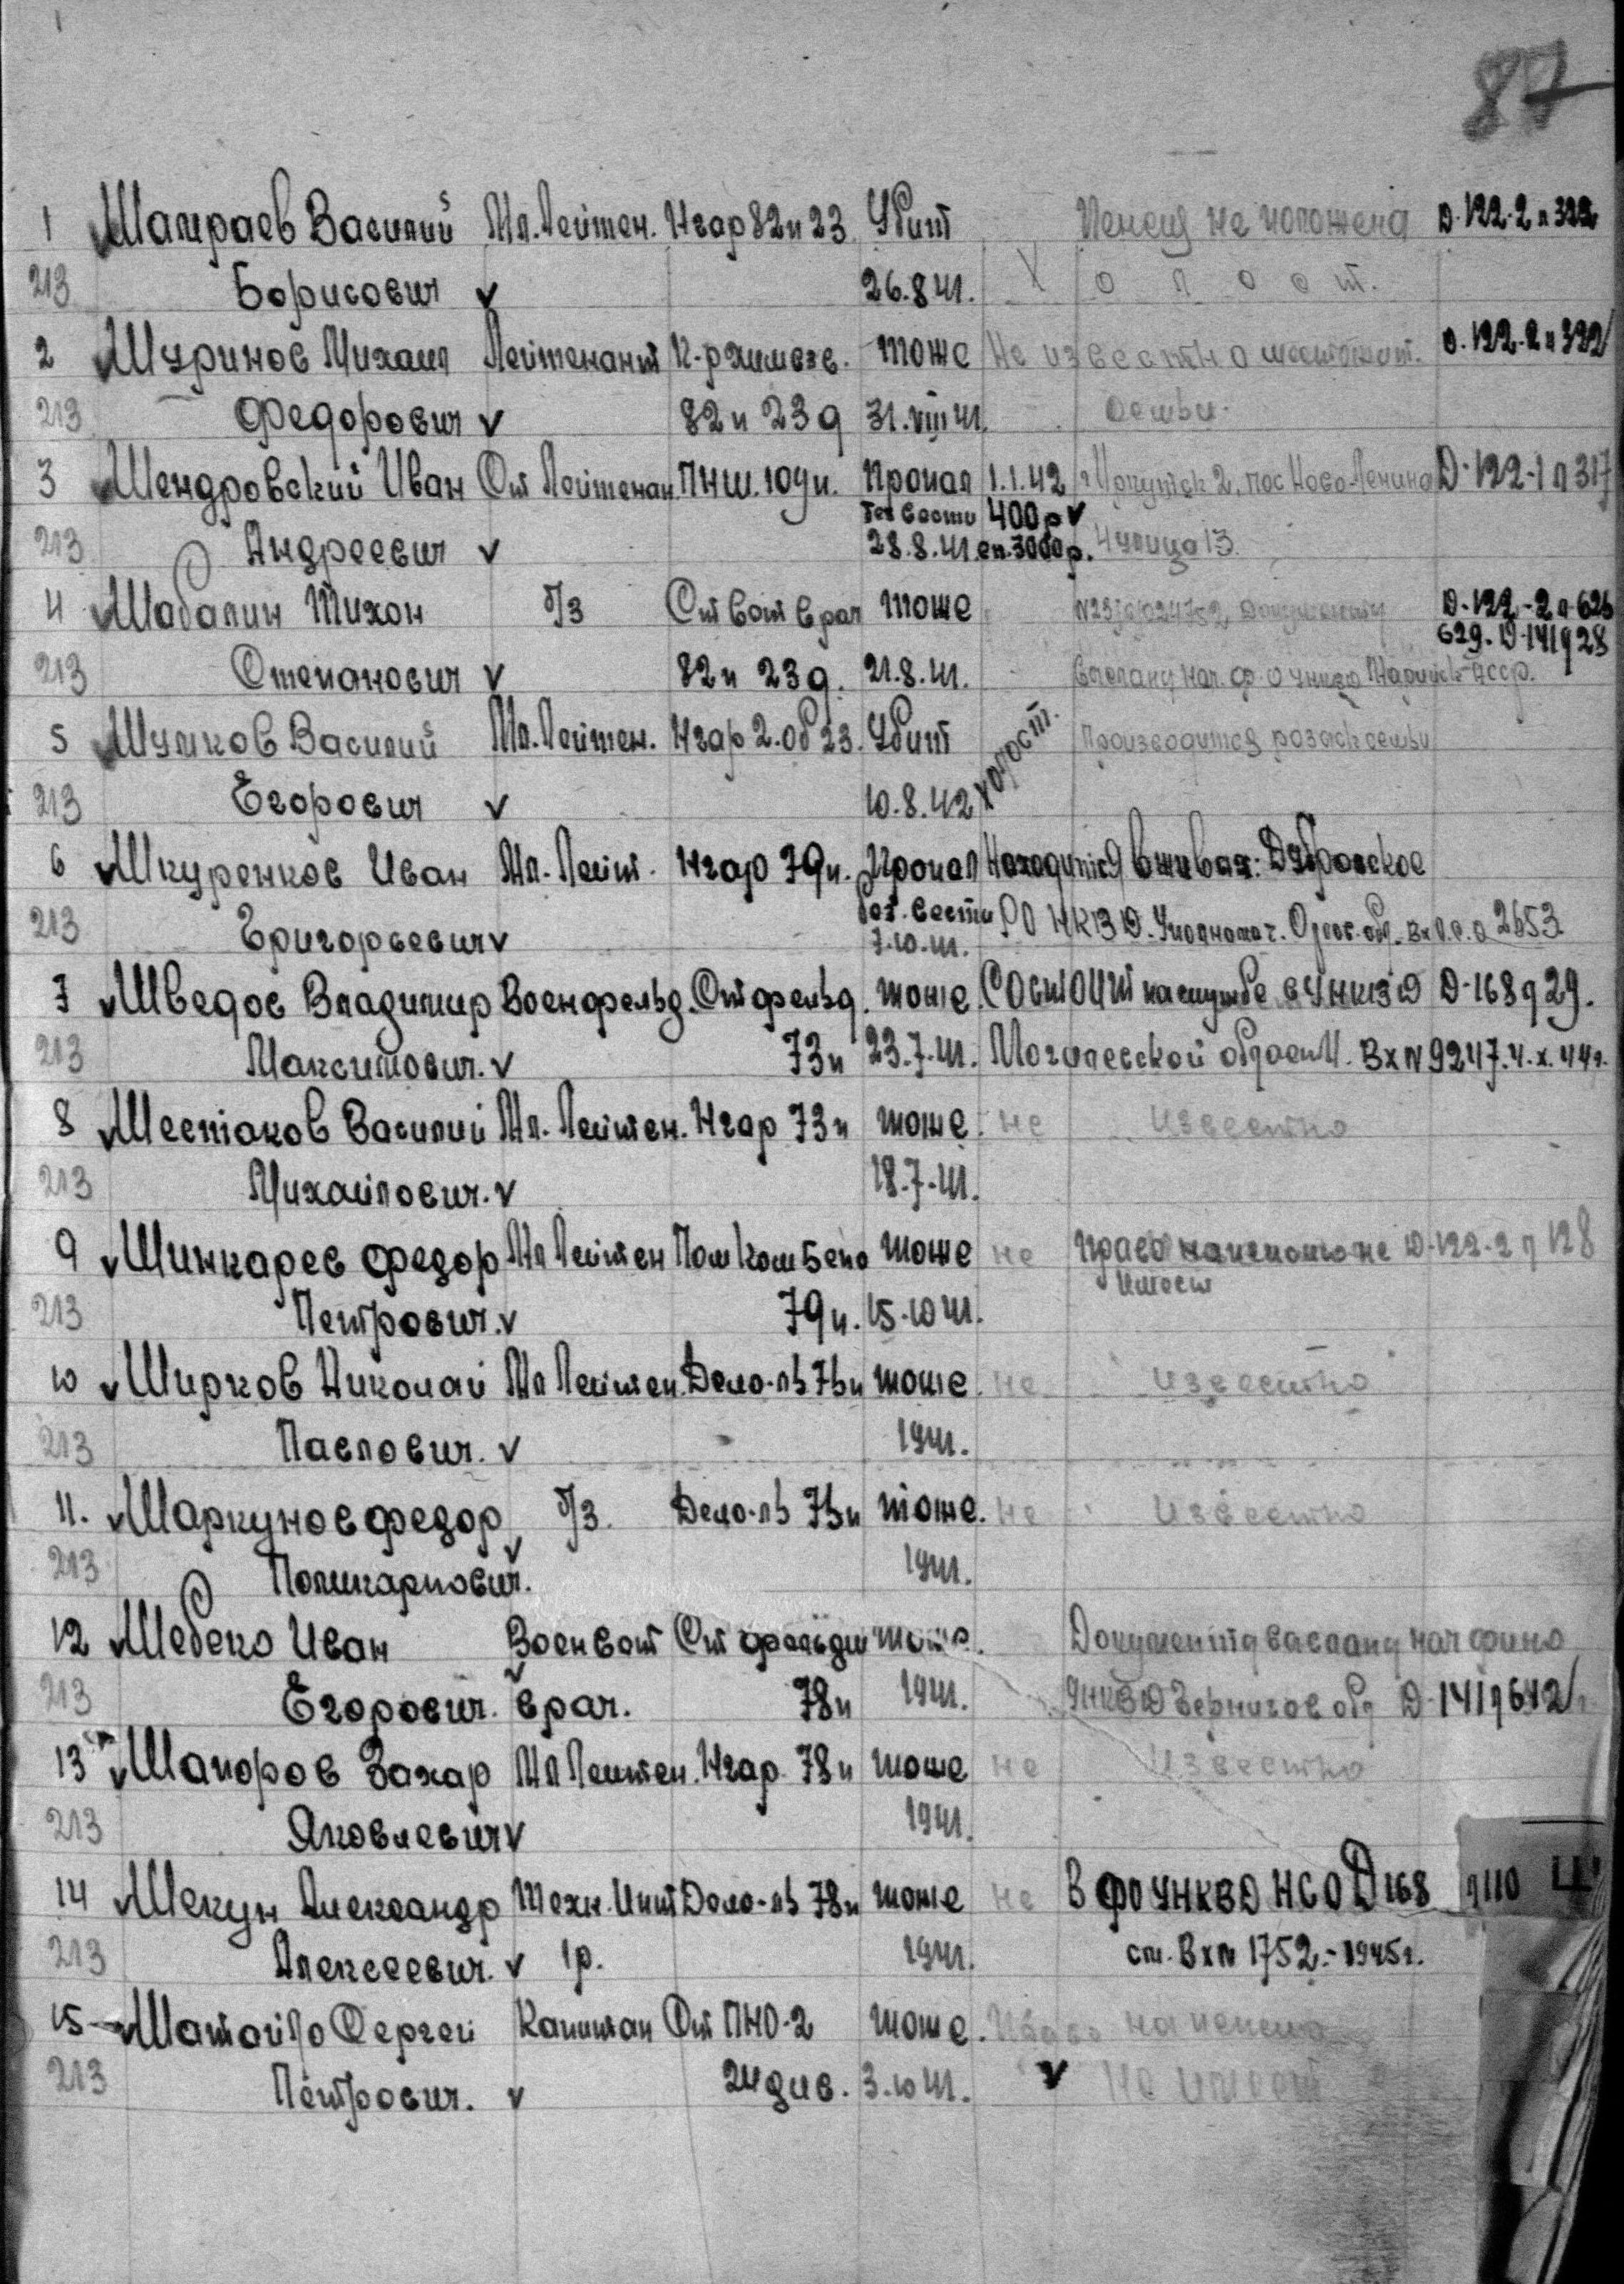 87
1 Шатраев Василий Мл. Лейтен. Нзар 82п 23 Убит Пенсия не положена Д.122-2 л 322
213 Борисович 26.8.41. Холост.
2 Шуринов Михаил Лейтенант К-р химвзв. тоже Не известно местожит. Д.122-2 л 322
213 Федорович 82п 23д 31.VIII 41. семьи.
3 Шендровский Иван Ст Лейтенан. ПНШ. 109п. Пропал 1.1.42 г Иркутск 2, пос Ново-Ленино Д-122-1 л 317
без вести 400 р
213 Андреевич 28.8.41. еп. 3000 р. 4 улица 13.
4 Шабалин Тихон б/з Ст Вет врач тоже Документы Д-122-2 л-626
629. Д-141 л 28
213 Степанович 82п 23д. 21.8.41. высланы нач. ФО УНКВД Марийск АССР.
5 Шумков Василий Мл. Лейтен. Нзар 2.об 23. Убит Холост. Производится розыск семьи
213 Егорович 10.8.42
6 Шкуренков Иван Мл. Лейт. Нзар 79п. Пропал Находится в живых: Дубровское
без. вести
213 Григорьевич 7.10.41. РО НКВД. Уполномоч. Орлов. обл. Вх 2653
7 Шведов Владимир Военфельд. Ст фельд. тоже. Состоит на службе в УНКВД Д-168 л 29.
213 Максимович. 73п 23.7.41. Могилевской области. Вх № 9247. 4.X.44г.
8 Шестаков Василий Мл. Лейтен. Нзар 73п тоже. не известно
213 Михайлович. 18.7.41.
9 Шинкарев Федор Мл Лейтен Пом Ком Бепо тоже не право на пенсию не Д-122-2 л 128
имеет
213 Петрович. 79п. 15.10 41.
10 Ширков Николай Мл Лейтен. Дело-ль 75п тоже. не известно
213 Павлович. 1941.
11. Шаркунов Федор б/з. Дело-ль 75п тоже. не известно
213 Поликарпович. 1941.
12 Шебеко Иван Воен Вет Ст фельдш тоже. Документы высланы нач финo
213 Егорович. врач. 78п 1941. УНКВД Чернигов обл Д-141 л 642
13 Шапоров Захар Мл Лейтен. Нзар. 78п тоже не известно
213 Яковлевич 1941.
14 Шекун Александр Техн. Инт Дело-ль 78п тоже не В ФО УНКВД НСО Д 168 л 110
213 Алексеевич. 1р. 1941. см. Вх № 1752.-1945г.
15 Шатайло Сергей Капитан Ст ПНО-2 тоже. Право на пенсию
213 Петрович. 24 див. 3.10 41. не имеет